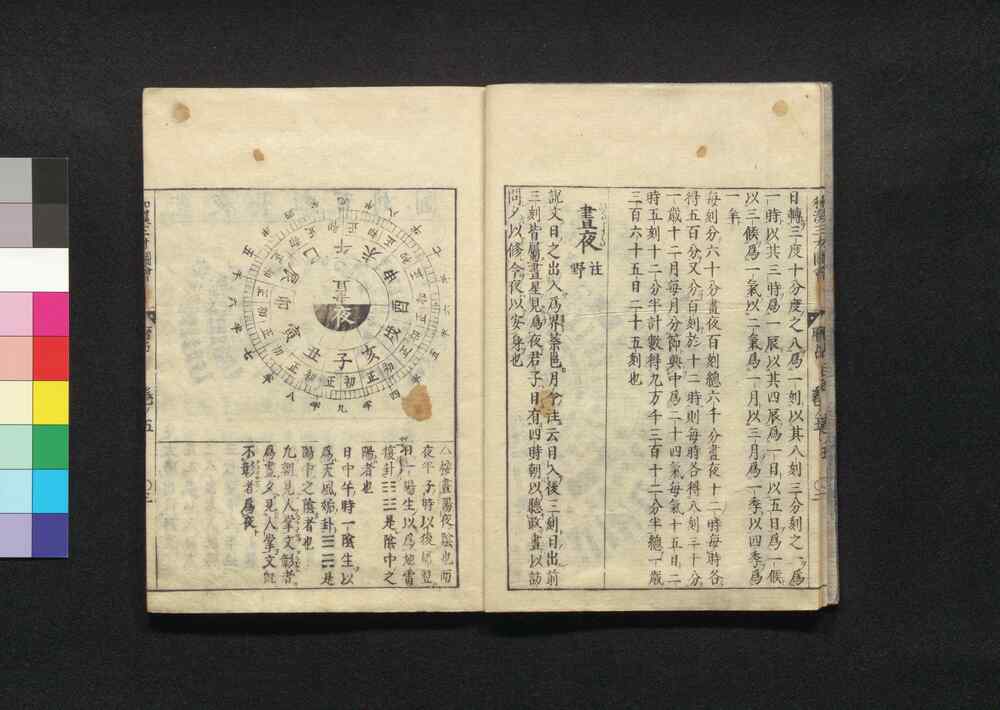 日轉三度十分度之八爲一刻以其八刻三分刻之一爲
一時以其三時爲一展以其四展爲一日以五日爲一候
以三候爲一氣以二氣爲一月以三月爲一季以四季爲
一年
毎刻分六十分晝夜百刻總六千分晝夜十二時毎時各
得五百分又分百刻於十二時則毎時各得八刻三十分
一歳十二月毎月分節與中爲二十四氣毎氣十五日二
時五刻十二分半計數得九万千三百十二分半總一歳
三百六十五日二十五刻也
晝夜
註
野
説文日之出入爲界蔡邕月令注云日入後三刻日出前
三刻皆屬晝星見爲夜君子日有四時朝以聽政晝以訪
問夕以修令夜以安身也
晝
夜
子
丑
寅
卯
辰
巳
午
未
申
酉
戌
亥
初
正
△按晝陽夜陰也而
夜半子時以後
一陽生以爲地雷
復卦☷☳是陰中之
陽者也
日中午時一陰生以
爲天風姤卦☰☴是
陽中之陰者也
凡朝見人掌文影者
爲晝夕見人掌文
不影者爲夜